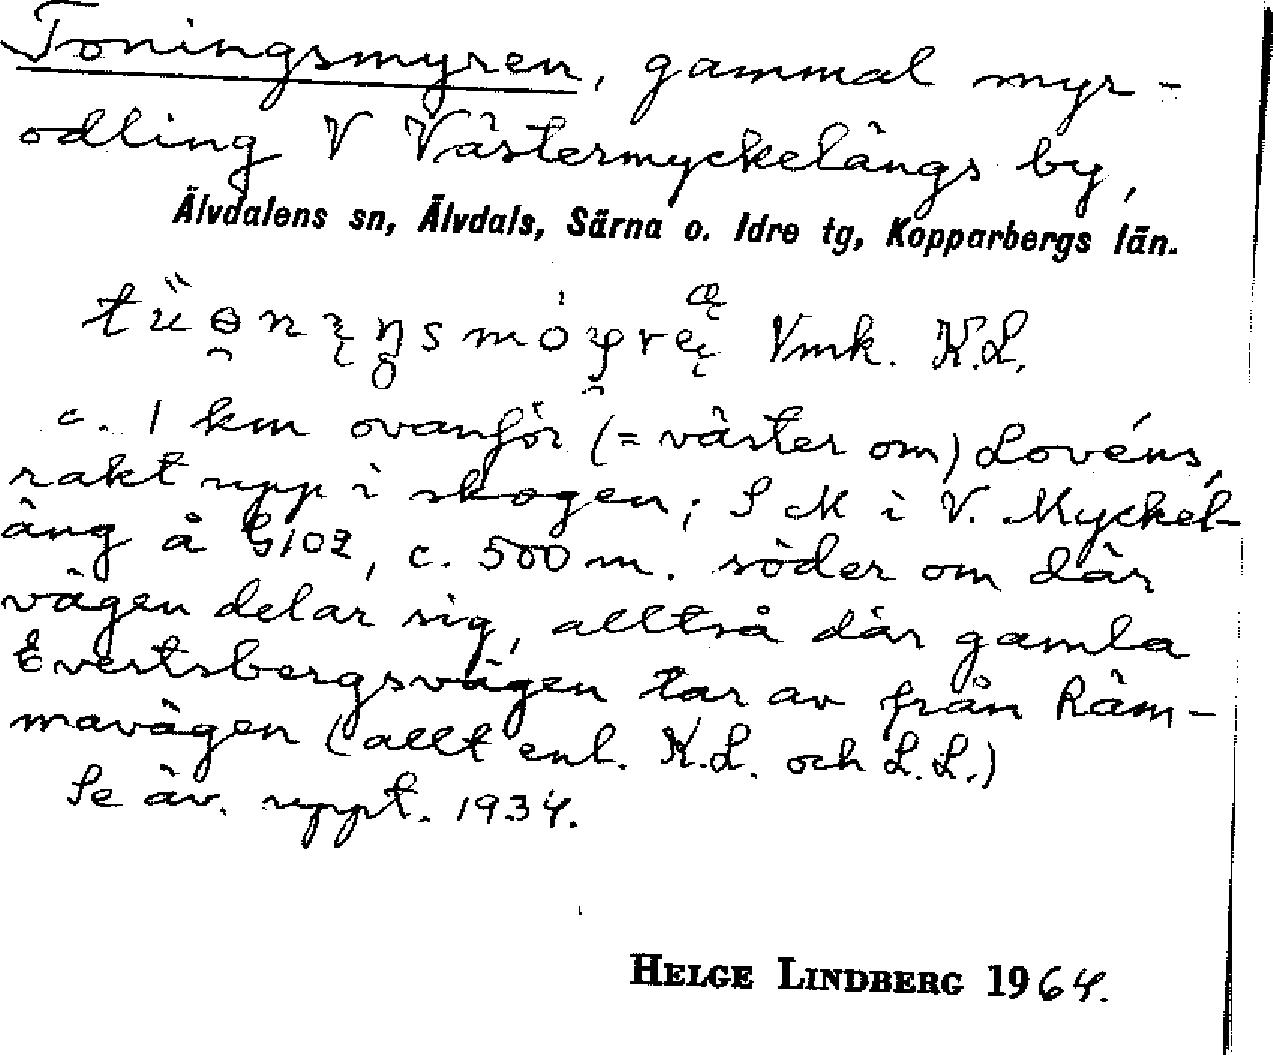 Toningsmyren, gammal myr-
odling V Västermyckelängs by,
Älvdalens sn, Älvdals, Särna o. Idre tg, Kopparbergs län.
Vmk. K.L.
c. 1 km ovanför (= väster om) Lovéns,
rakt upp i skogen; S M i V. Myckel-
äng å G102, c. 500 m. söder om där
vägen delar sig, alltså där gamla
Evertsbergsvägen tar av från Räm-
mavägen (allt enl. K.L. och L.L.)
Se äv. uppt. 1934.
HELGE LINDBERG 1964.